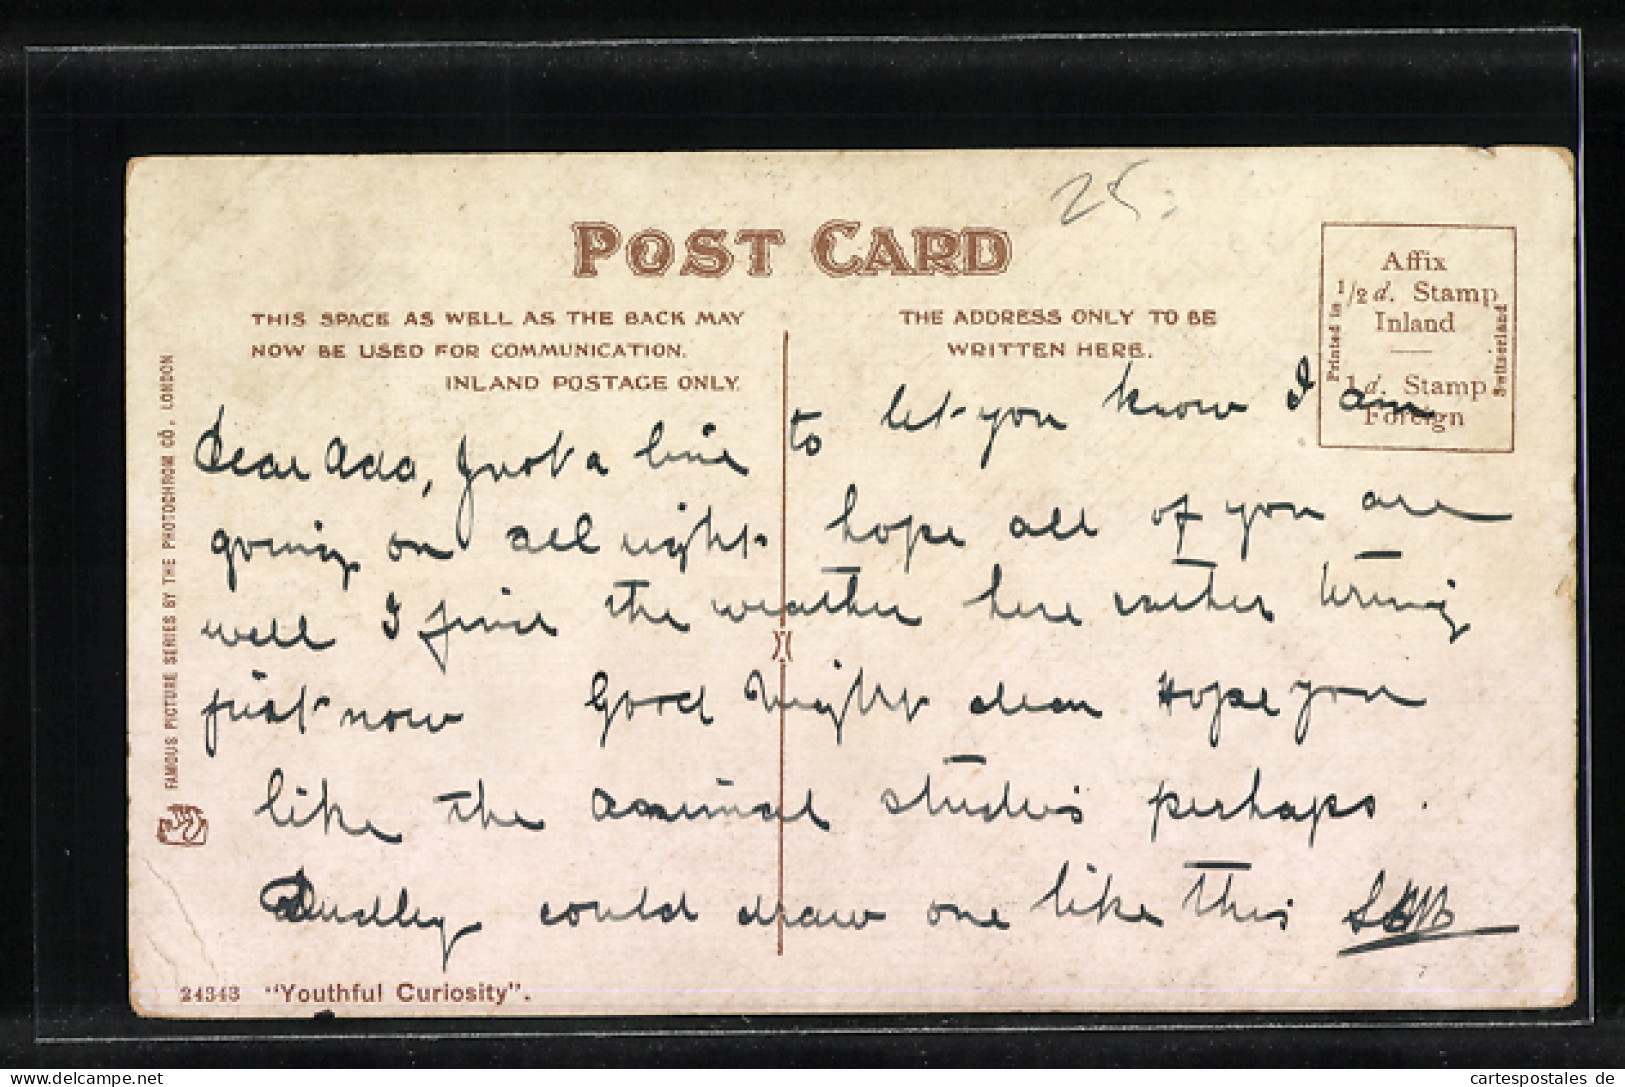 25
POST CARD
THIS SPACE AS WELL AS THE BACK MAY
NOW BE USED FOR COMMUNICATION.
INLAND POSTAGE ONLY.
THE ADDRESS ONLY TO BE
WRITTEN HERE.
Affix
1/2 d. Stamp
Inland
1 d. Stamp
Foreign
Printed in
Switzerland
FAMOUS PICTURE SERIES BY THE PHOTOCHROM CO., LONDON
Dear Ada, Just a line to let you know I am
going on all right hope all of you are
well I find the weather here rather tiring
just now Good Night dear Hope you
like the animal studies perhaps.
Dudley could draw one like this
24343 "Youthful Curiosity".
cartespostales de